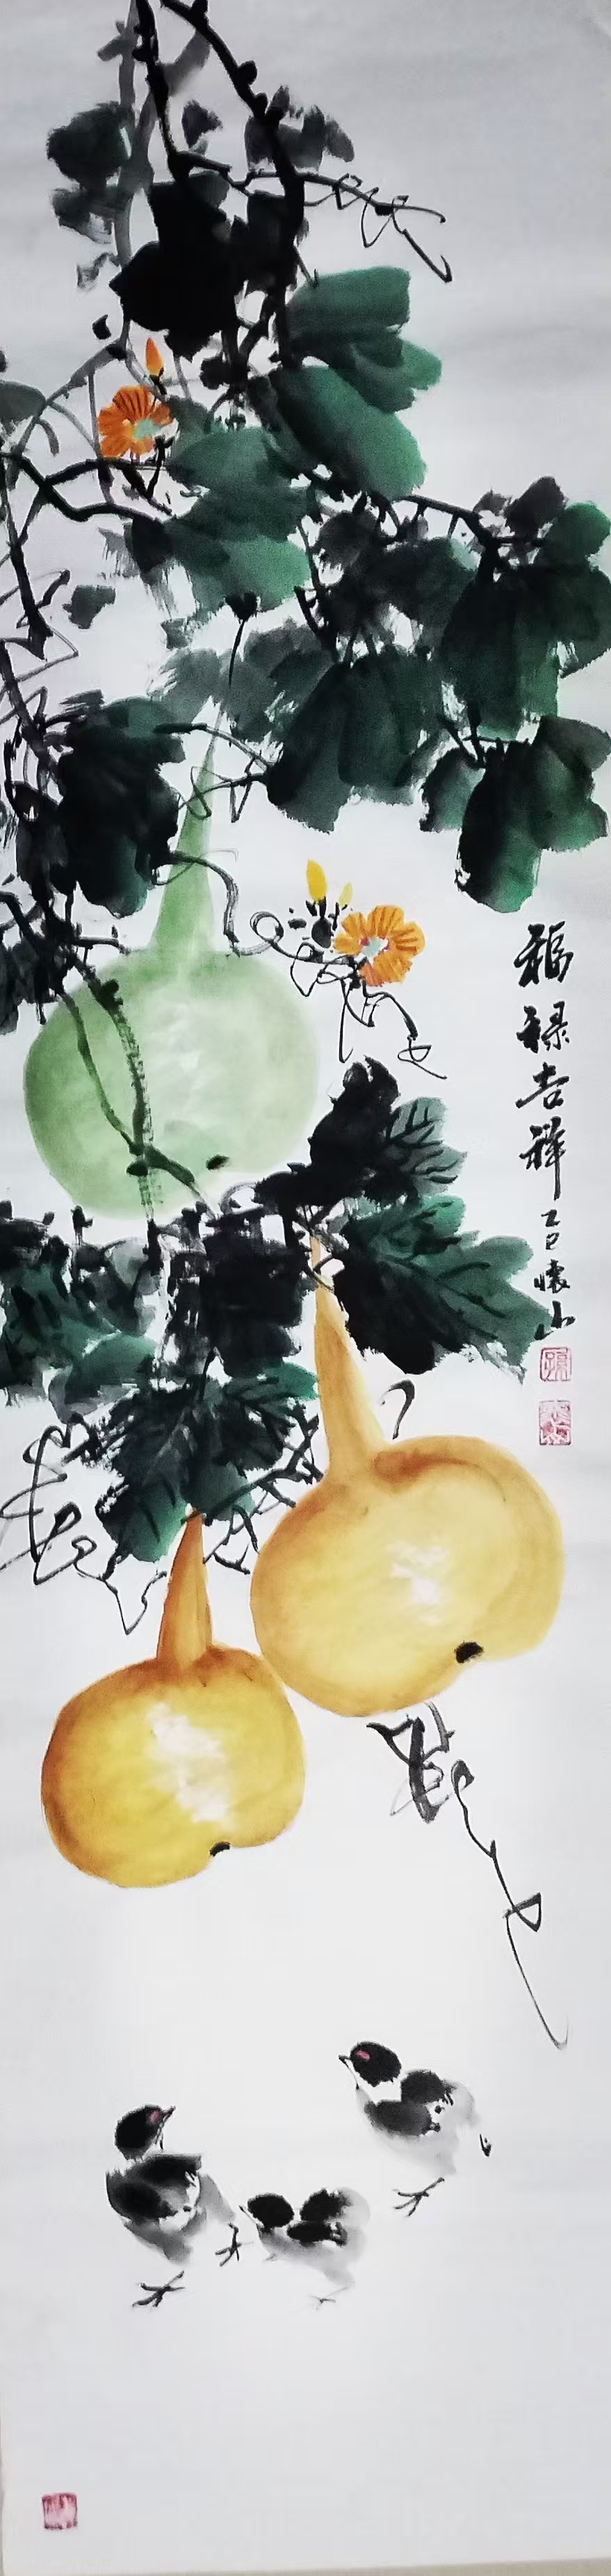 福禄吉祥乙巳懐山